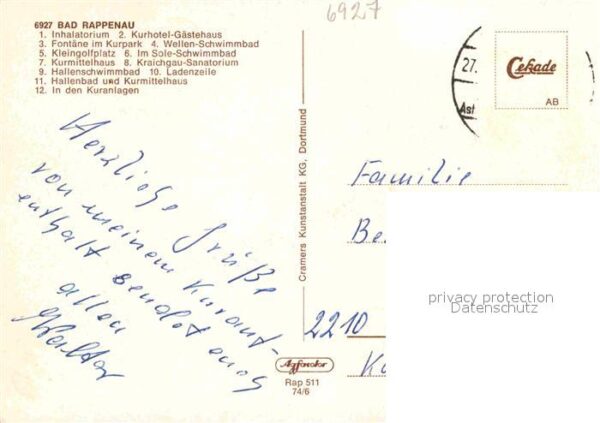 6927
6927 BAD RAPPENAU
1. Inhalatorium 2. Kurhotel-Gästehaus
3. Fontäne im Kurpark 4. Wellen-Schwimmbad
5. Kleingolfplatz 6. Im Sole-Schwimmbad
7. Kurmittelhaus 8. Kraichgau-Sanatorium
9. Hallenschwimmbad 10. Ladenzeile
11. Hallenbad und Kurmittelhaus
12. In den Kuranlagen
Herzliche Grüße
von meinem Kurauf-
enthalt sendet euch
allen
Walter
Cramers Kunstanstalt KG, Dortmund
27.
Cekade
AB
Familie
Be
2210
privacy protection
Datenschutz
Rap 511
74/6